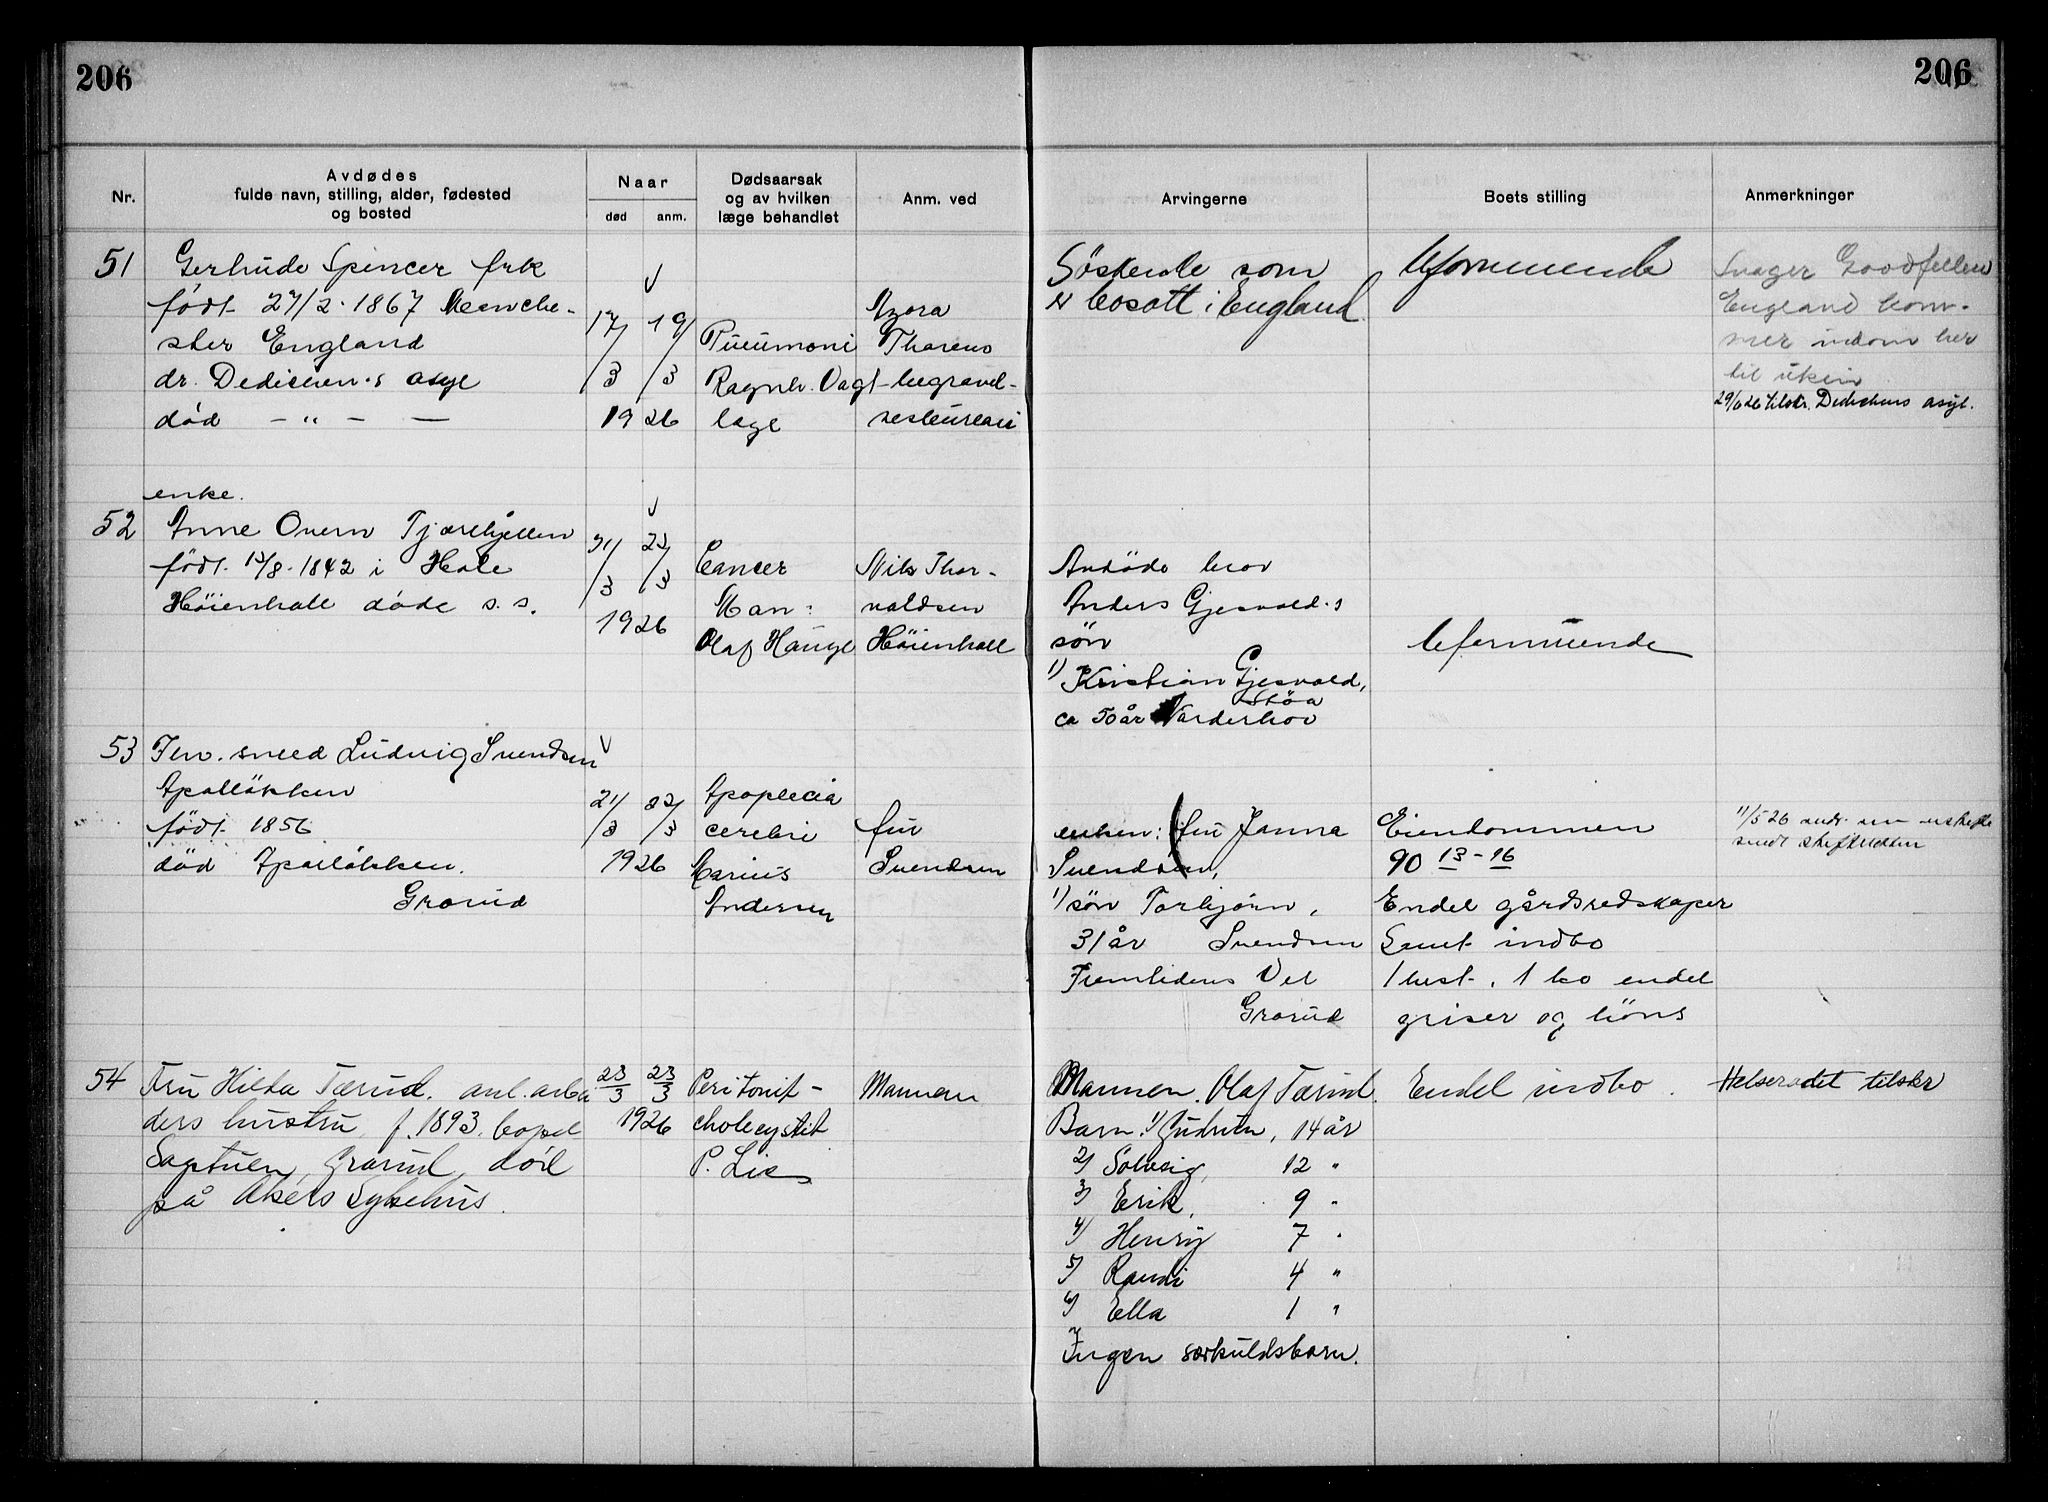 206
206
Nr.
Avdødes
fulde navn, stilling, alder, fødested
og bosted
Naar
død
anm.
Dødsaarsak
og av hvilken
læge behandlet
Anm. ved
Arvingerne
Boets stilling
Anmerkninger
51
Gertrude Spencer frk
født 27/2. 1867 Manche-
ster England
dr. Dedichen's asyl
død - " - -
17/3 19/3
1926
Pneumoni
Ragnh. Vogt
læge
Thorens
begravel-
sesbureau
Søskende som
er bosatt i England
Uformuende
Svager Goodfellen
England kom-
mer indom her
til uken
29/6 26 tilskr. Dedichens asyl.
52
enke.
Anne Overn Tjærehjellen
født 13/8. 1842 i Hole
Høienhall døde s. s.
21/3 23/3
1926
Cancer
Mam:
Olaf Hauge
Nils Thor-
valdsen
Høienhall
Avdøde bror
Anders Gjesvold's
søn
1) Kristian Gjesvold,
Støa
ca 50 år Norderhov
Uformuende
53
Fhv. smed Ludvig Svendsen
Apalløkken
født 1856
død Apalløkken.
Grorud
21/3 22/3
1926
Apoplecia
cerebri
Marius
Andersen
fru
Svendsen
enken: fru Janna
Svendsen,
1) søn Torbjørn,
31 år Svendsen
Fremtidens Vel
Grorud
Eiendommen
90 13-16
Endel gårdsredskaper
Samt indbo
1 hest, 1 ko endel
griser og höns
11/5 26 uskifte
sendt skifteretten
54
Fru Hilda Tærud. anl. arbei
ders hustru, f. 1893, bopel
Sagstuen, Grorud, död
på Akers Sykehus.
23/3 23/3
1926
Peritonit-
cholecystit
P. Lie
Mannen
Mannen. Olaf Tærud.
Barn: 1) Gudrun, 14 år
2) Solveig, 12 "
3) Erik, 9 "
4) Henry 7 "
5) Randi 4 "
6) Ella 1 "
Ingen særkuldsbarn.
Endel indbo.
Helserådet tilskr